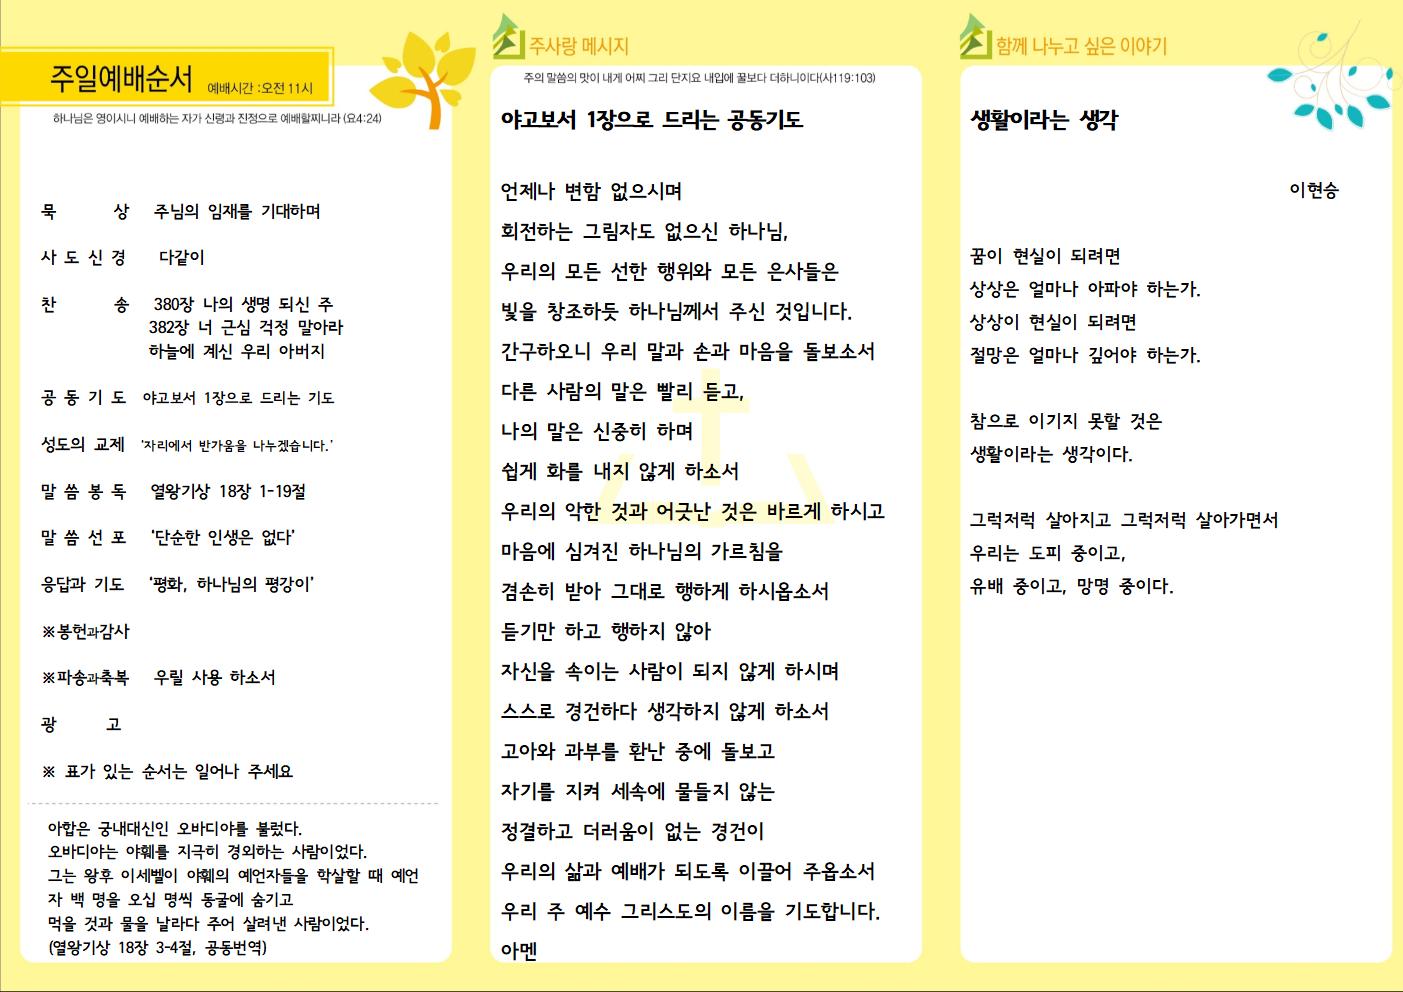 주일예배순서 예배시간 :오전 11시
하나님은 영이시니 예배하는 자가 신령과 진정으로 예배할찌니라 (요4:24)
묵 상 주님의 임재를 기대하며
사 도 신 경 다같이
찬 송 380장 나의 생명 되신 주
382장 너 근심 걱정 말아라
하늘에 계신 우리 아버지
공 동 기 도 야고보서 1장으로 드리는 기도
성도의 교제 '자리에서 반가움을 나누겠습니다.'
말 씀 봉 독 열왕기상 18장 1-19절
말 씀 선 포 '단순한 인생은 없다'
응답과 기도 '평화, 하나님의 평강이'
※봉헌과감사
※파송과축복 우릴 사용 하소서
광 고
※ 표가 있는 순서는 일어나 주세요
아합은 궁내대신인 오바디야를 불렀다.
오바디야는 야훼를 지극히 경외하는 사람이었다.
그는 왕후 이세벨이 야훼의 예언자들을 학살할 때 예언
자 백 명을 오십 명씩 동굴에 숨기고
먹을 것과 물을 날라다 주어 살려낸 사람이었다.
(열왕기상 18장 3-4절, 공동번역)
주사랑 메시지
주의 말씀의 맛이 내게 어찌 그리 단지요 내입에 꿀보다 더하니이다(사119:103)
야고보서 1장으로 드리는 공동기도
언제나 변함 없으시며
회전하는 그림자도 없으신 하나님,
우리의 모든 선한 행위와 모든 은사들은
빛을 창조하듯 하나님께서 주신 것입니다.
간구하오니 우리 말과 손과 마음을 돌보소서
다른 사람의 말은 빨리 듣고,
나의 말은 신중히 하며
쉽게 화를 내지 않게 하소서
우리의 악한 것과 어긋난 것은 바르게 하시고
마음에 심겨진 하나님의 가르침을
겸손히 받아 그대로 행하게 하시옵소서
듣기만 하고 행하지 않아
자신을 속이는 사람이 되지 않게 하시며
스스로 경건하다 생각하지 않게 하소서
고아와 과부를 환난 중에 돌보고
자기를 지켜 세속에 물들지 않는
정결하고 더러움이 없는 경건이
우리의 삶과 예배가 되도록 이끌어 주옵소서
우리 주 예수 그리스도의 이름을 기도합니다.
아멘
함께 나누고 싶은 이야기
생활이라는 생각
이현승
꿈이 현실이 되려면
상상은 얼마나 아파야 하는가.
상상이 현실이 되려면
절망은 얼마나 깊어야 하는가.
참으로 이기지 못할 것은
생활이라는 생각이다.
그럭저럭 살아지고 그럭저럭 살아가면서
우리는 도피 중이고,
유배 중이고, 망명 중이다.